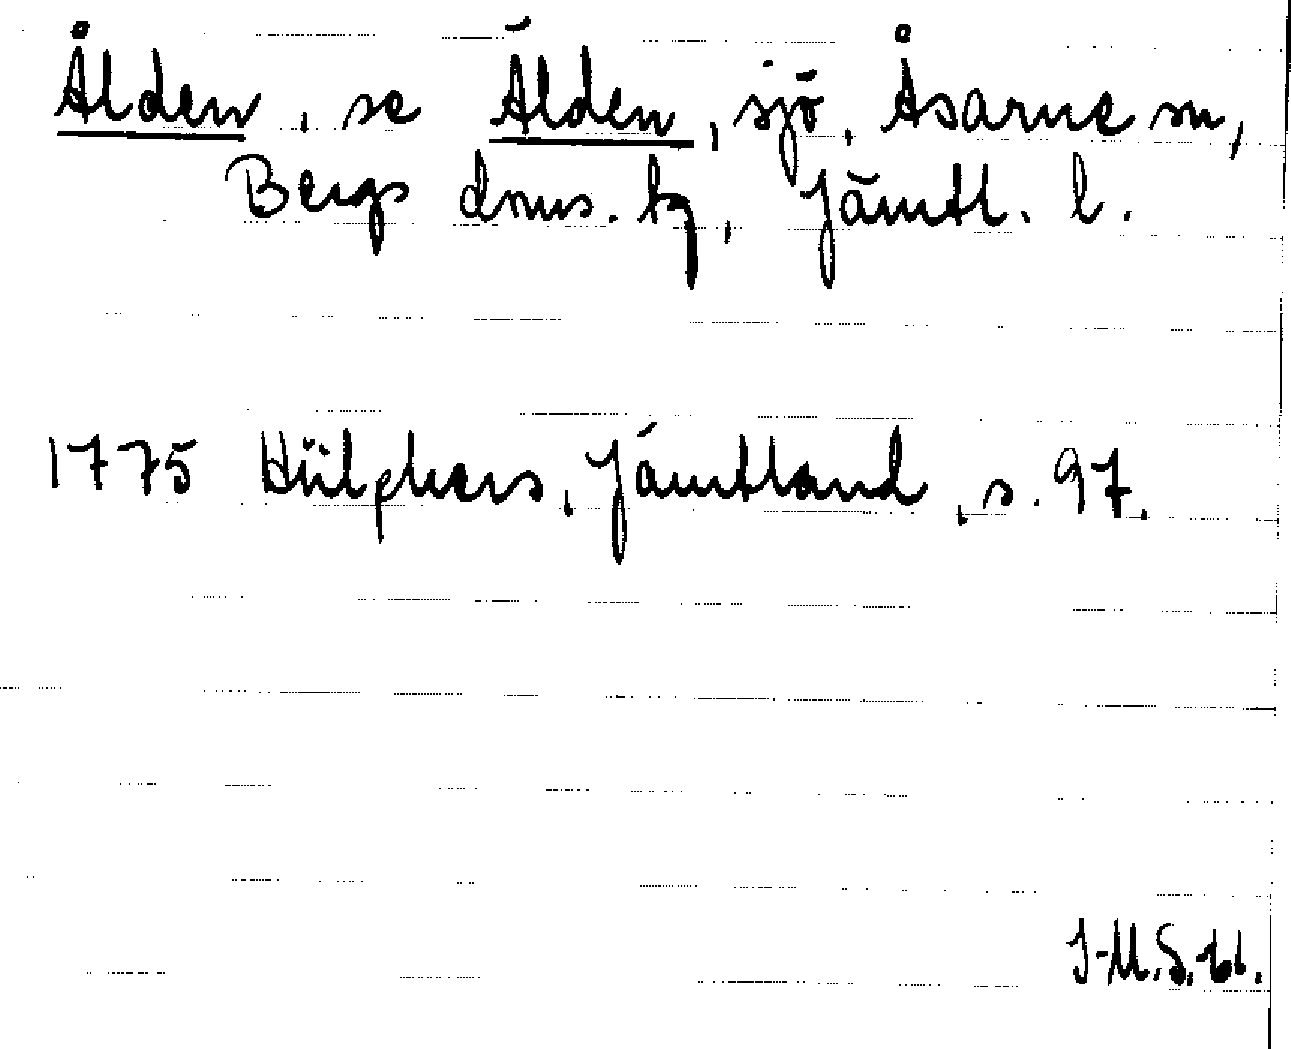 Ålden, se Älden, sjö, Åsarne sn,
Bergs dmns. tg, Jämtl. l.
1775 Hülphers, Jämtland, s. 97.
I-M.S. 61.